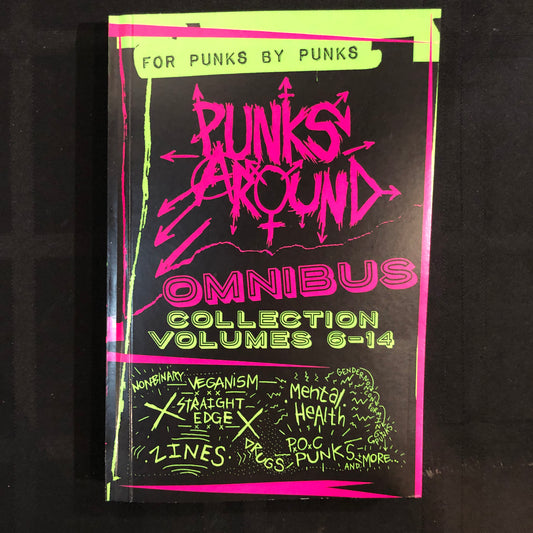 FOR PUNKS BY PUNKS
PUNKS
AROUND
OMNIBUS
COLLECTION
VOLUMES 6-14
NONBINARY
VEGANISM
X STRAIGHT X
EDGE
ZINES
DRUGS
Mental
Health
P.O.C
PUNKS
AND MORE...